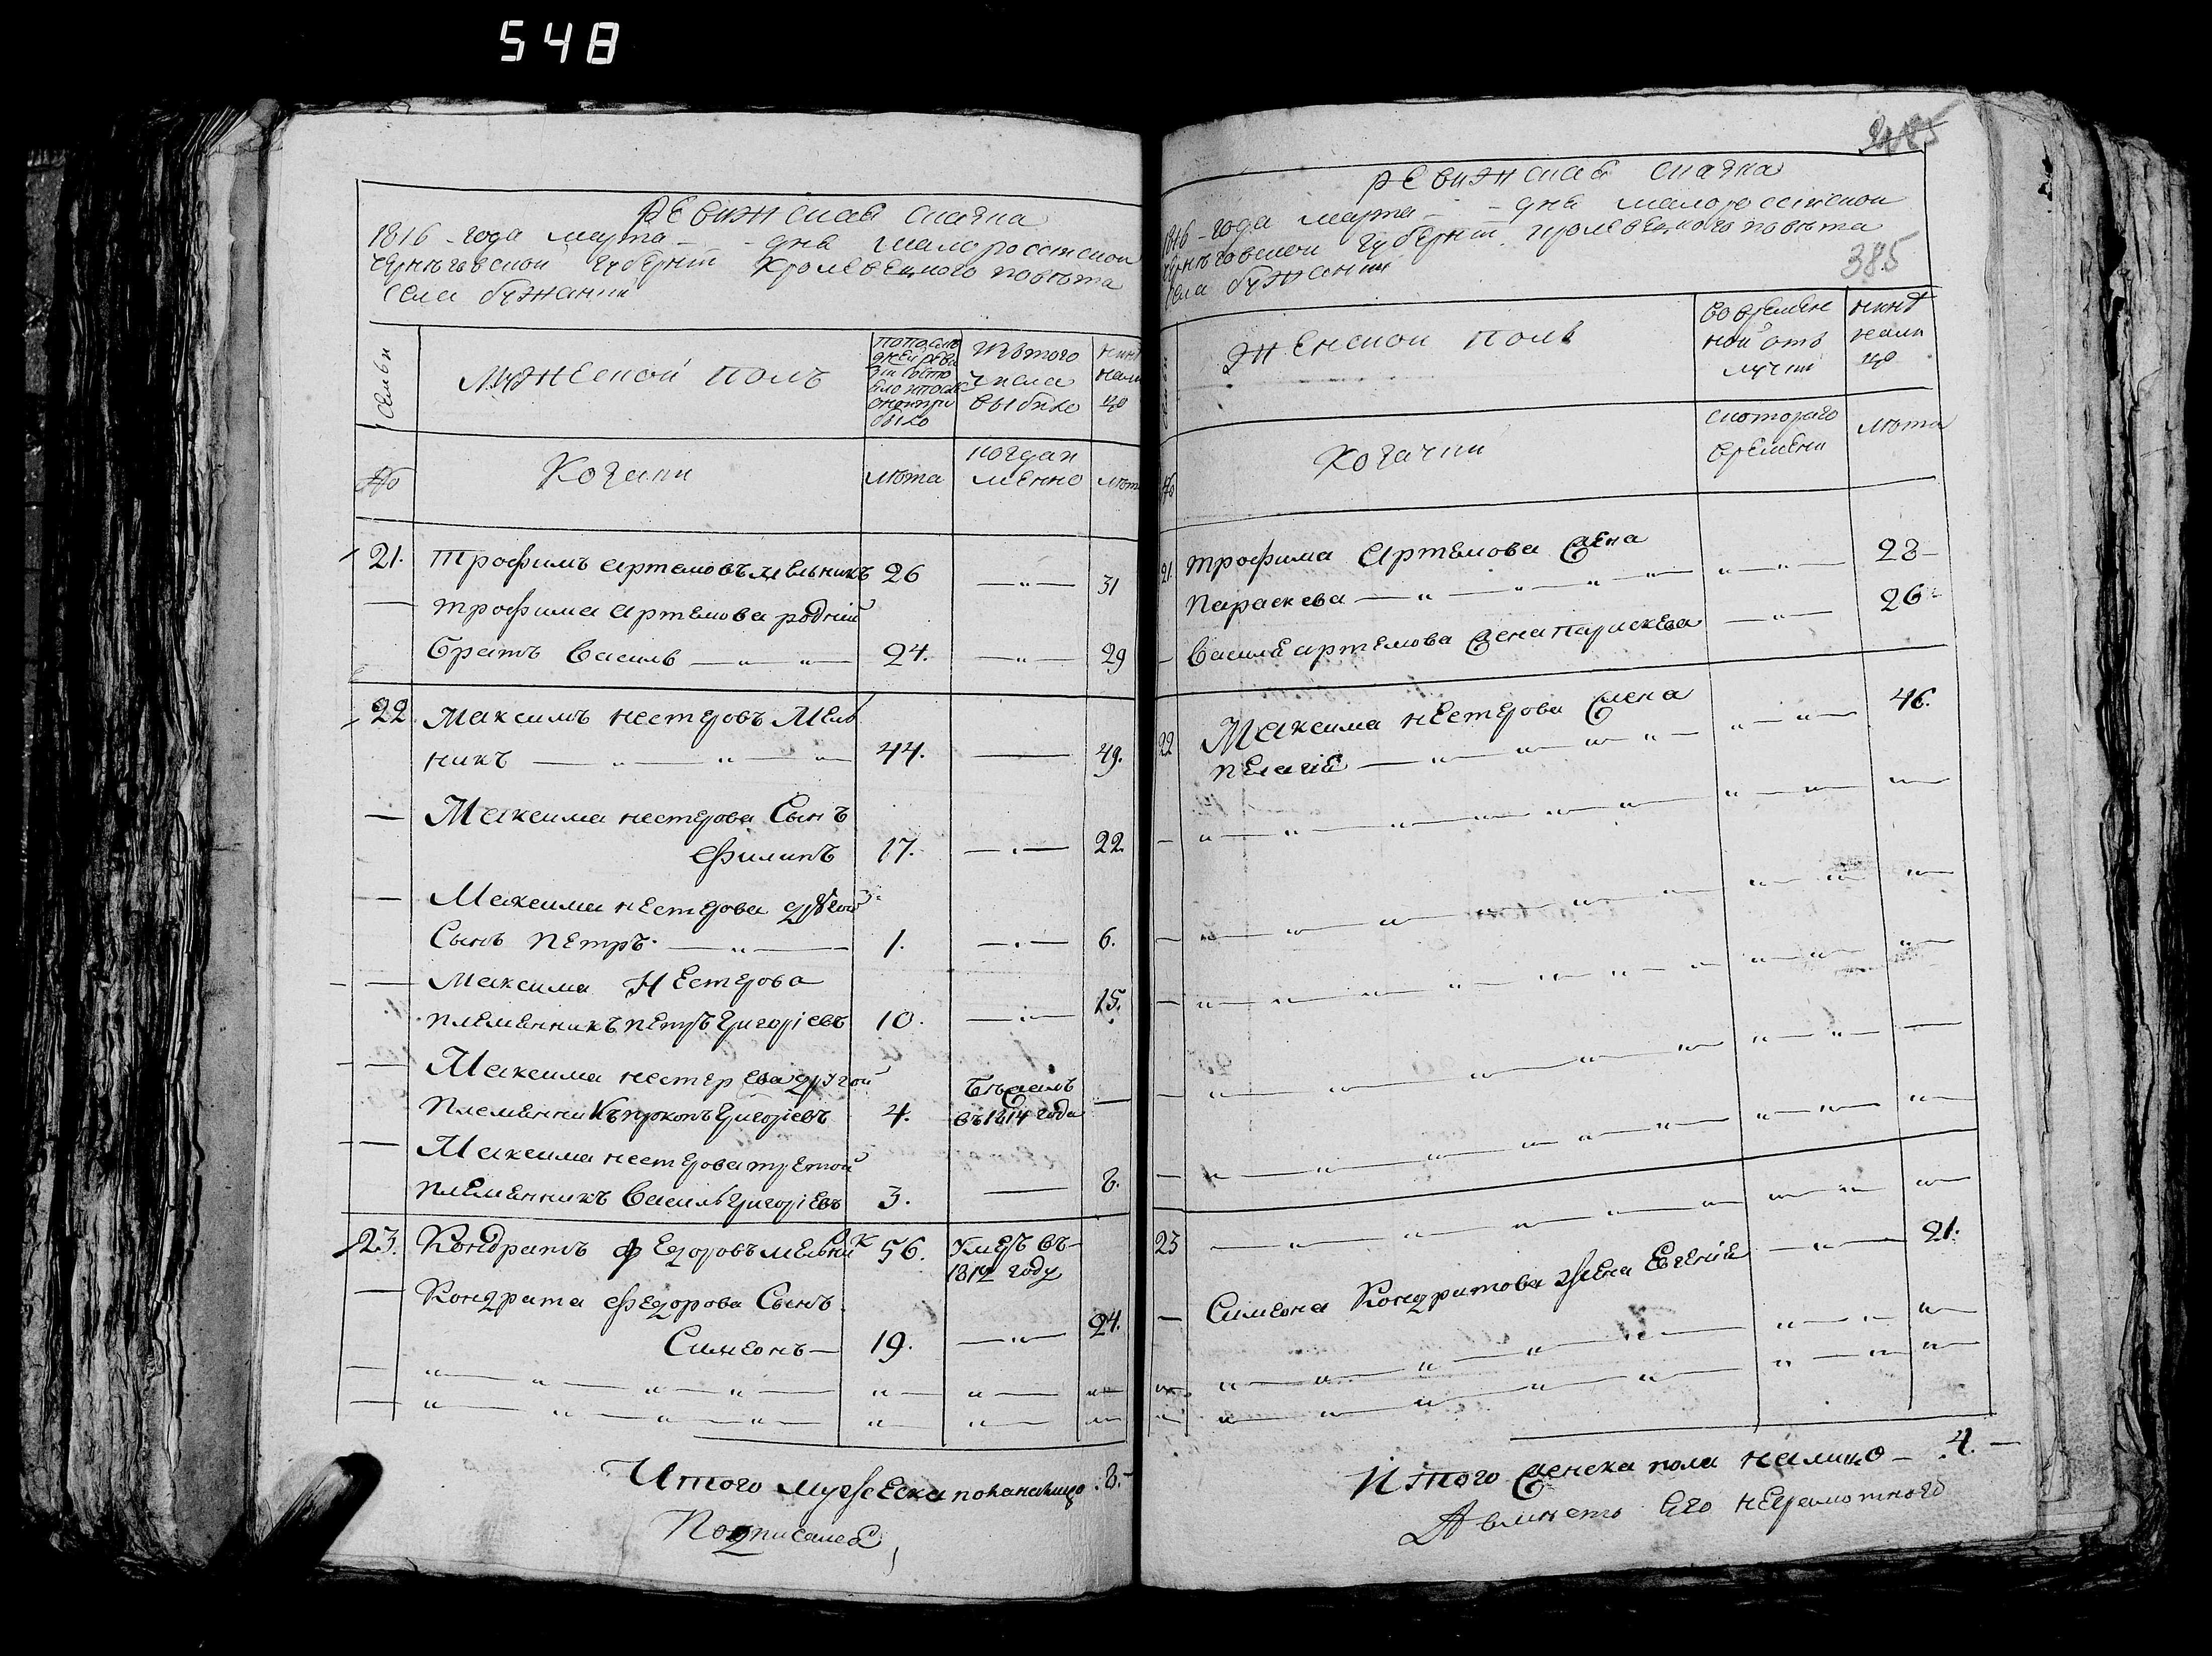 548
ревижская сказка
1816-года марта - - дня малоросеской
Чернѣговской губернїи Кролевецкого повѣта
села бужанки
Семьи
мужеской полъ
попослѣ
дней реви
зїи состо
яло ипосле
оной при
было
Изътого
числа
выбыло
нинѣ
нали
цо
№
Козаки
лѣта
когда и
менно
лѣта
21. Трофимъ Артемовъ мелникъ 26 31
Трофима Артемова родній
братъ Василь 24. 29
22. Максимъ нестеровъ Мель
никъ 44. 49.
Максима нестерова Сынъ
Филипъ 17. 22.
Максима нестерова другой
Сынъ петръ 1. 6.
Максима Нестерова
племенникъ петръ григорїевъ 10. 15.
Максима нестерова другой
племенникъ прокопъ григорїевъ 4. Бѣжалъ
въ 1814 года
Максима нестерова третой
племенникъ Василь григорїевъ 3. 8.
23. Кондратъ Федоровъ мельник 56. Умеръ въ
1812 году
Кондрата Федорова Сынъ
Симеонъ 19. 24.
Итого мужеска пола налицо 8.
Подписался
385
ревижская сказка
1816-года марта - - дня малоросеской
Чернѣговской губернїи кролевецкого повѣта
села бужанки
женской полъ
во времен
ной отъ
лучки
нинѣ
нали
цо
№
Козачки
скоторого
времени
лѣта
21. Трофима Артемова жена 28
Параскева
Василя артемова жена параскева 26
22 Максима нестерова жена 46.
пелагія
23
Симеона Кондратова жена Евгенія 21.
Итого женска пола налицо 4.
А вмѣсто его неграмотного